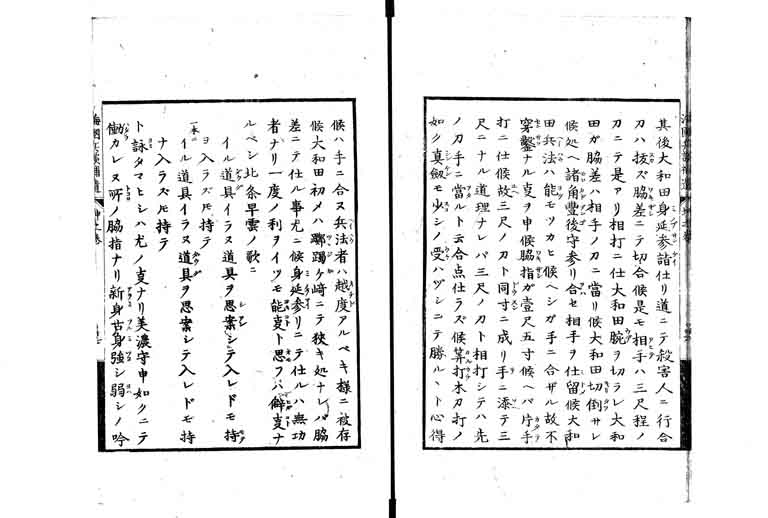 其後大和田身延参詣仕リ道ニテ殺害人ニ行合
刀ハ抜ズ脇差ニテ切合候是モ相手ハ三尺程ノ
刀ニテ是アリ相打ニ仕大和田腕ヲ切ラレ大和
田ガ脇差ハ相手ノ刀ニ當リ候大和田切倒サレ
候処ヘ諸角豊後守参リ合セ相手ヲ仕留候大和
田兵法ハ能モツカヒ候ヘシガ手ニ合ザル故不
穿鑿ナル叓ヲ申候脇指ガ壹尺五寸候ヘバ片手
打ニ仕候故三尺ノ刀ト同寸ニ成リ手ニ添テ三
尺ニナル道理ナレバ三尺ノ刀ト相打シテハ先
ノ刀手ニ當ルト云合点仕ラズ候算打木刀打ノ
如ク真劔モ少シノ受ハヅシニテ勝ルヽト心得
候ハ手ニ合ヌ兵法者ハ越度アルベキ様ニ被存
候大和田初メハ躑躅ケ﨑ニテ狹キ処ナレバ脇
差ニテ仕ル事尤ニ候身延参リニテ仕ルハ無功
者ナリ一度ノ利ヲイツモ能叓ト思フハ僻叓ナ
ルベシ北条早雲ノ歌ニ
イル道具イラヌ道具ヲ思案シテ入レドモ持
ヨ入ラズモ持テ
一本ニ
イル道具イラヌ道具ヲ思案シテ入レドモ持
ナ入ラズモ持テ
ト詠タマヒシハ尤ノ叓ナリ美濃守申如クニテ
働カレヌ所ノ脇指ナリ新身古身強シ弱シノ吟